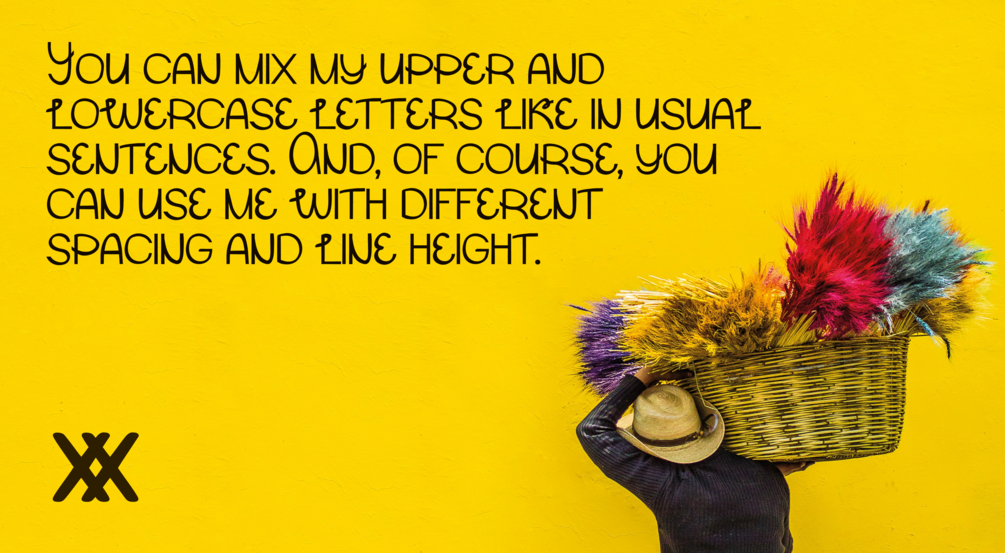 You can mix my upper and
lowercase letters like in usual
sentences. And, of course, you
can use me with different
spacing and line height.